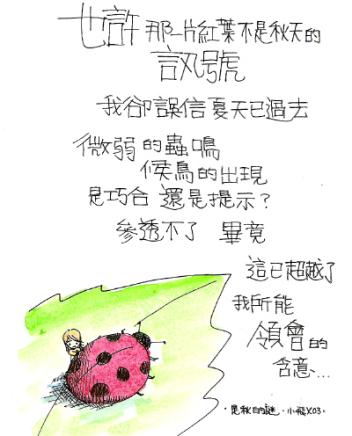 也許 那一片紅葉不是秋天的
訊號
我卻誤信夏天已過去
微弱的蟲鳴
候鳥的出現
是巧合 還是提示？
參透不了 畢竟
這已超越了
我所能
領會的
含意...
·是秋日的謎·小飛X03·